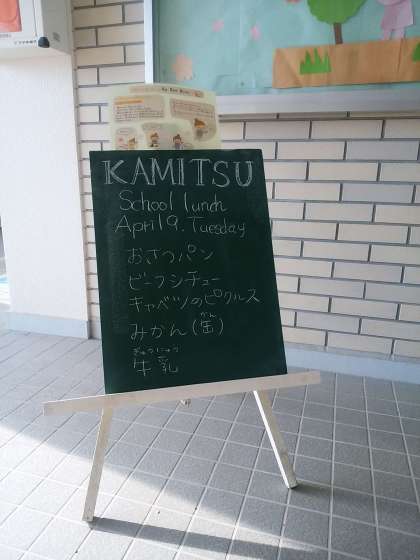 KAMITSU
School lunch
April 9. Tuesday
おさつパン
ビーフシチュー
キャベツのピクルス
みかん(缶)
かん
牛乳
ぎゅうにゅう